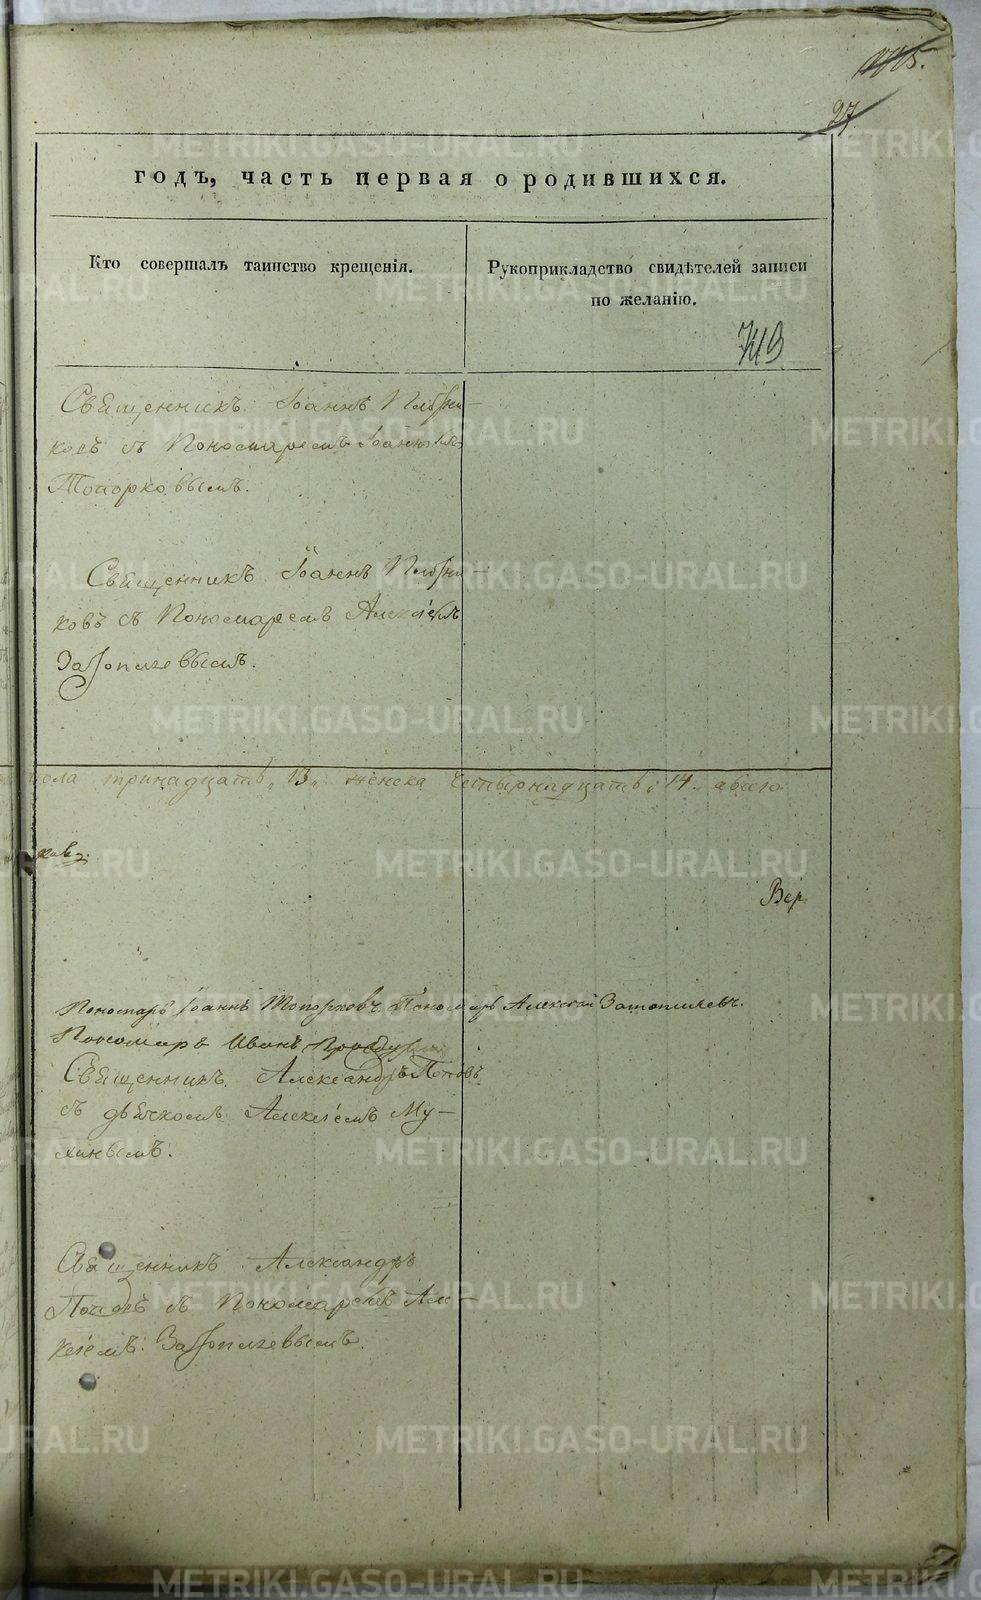 27
годъ, часть первая о родившихся.
Кто совершалъ таинство крещенія.
Рукоприкладство свидѣтелей записи
по желанію.
Священникъ Іоаннъ
ковъ съ Пономаремъ Іоанномъ
Топорковымъ.
Священникъ Іоаннъ
ковъ съ Пономаремъ Алексѣемъ
Затопляевымъ.
пола тринадцать "13" женска четырнадцать "14"
Вер
Пономарь Іоаннъ Топорковъ Пономарь Алексей Затопляевъ.
Пономарь Иванъ
Священникъ Александръ Поповъ
съ дьячкомъ Алексѣемъ Му-
хинымъ.
Священникъ Александръ
Поповъ съ Пономаремъ Але-
ксѣемъ Затопляевымъ.
METRIKI.GASO-URAL.RU